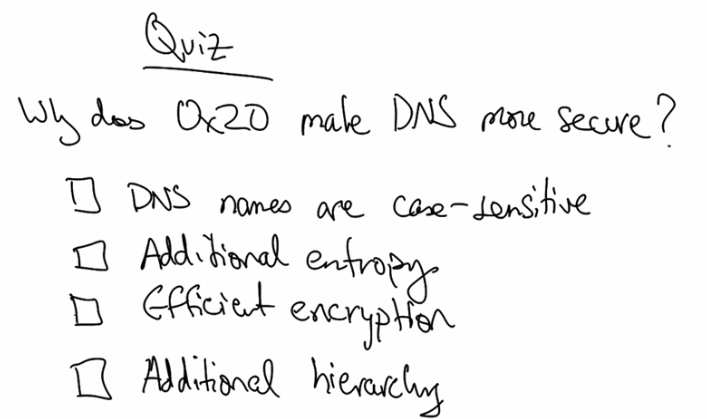 Quiz
Why does 0x20 make DNS more secure?
DNS names are case-sensitive
Additional entropy
Efficient encryption
Additional hierarchy